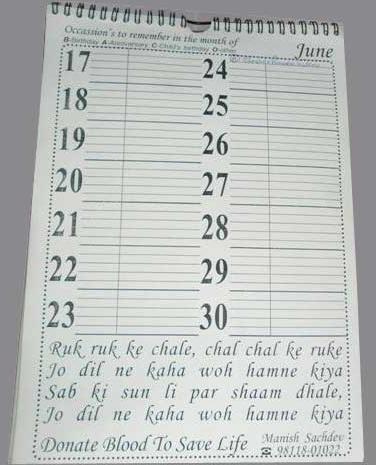 Occassion's to remember in the month of:
June
B-Birthday A-Anniversary C-Child's birthday O-other
17
18
19
20
21
22
23
24
25
26
27
28
29
30
Ruk ruk ke chale, chal chal ke ruke
Jo dil ne kaha woh hamne kiya
Sab ki sun li par shaam dhale,
Jo dil ne kaha woh hamne kiya
Donate Blood To Save Life
Manish Sachdev
98118-01022